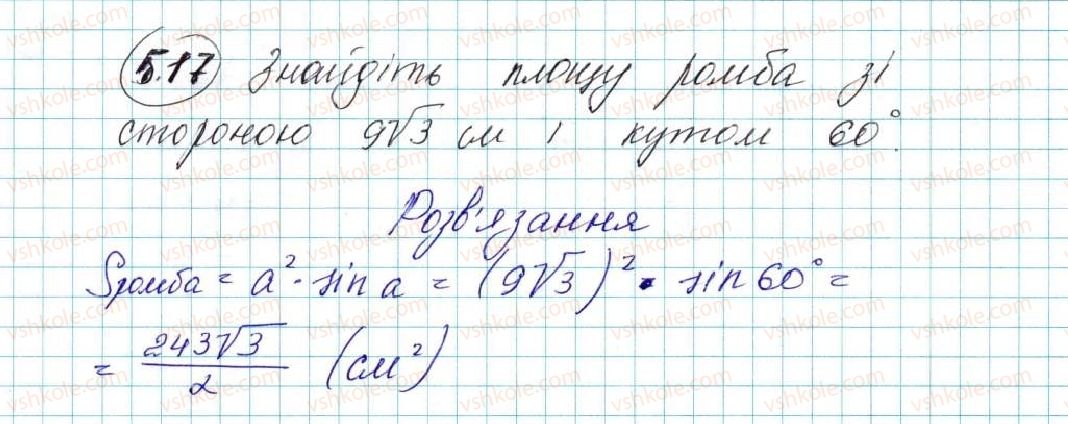 5.17 Знайдіть площу ромба зі
стороною 9√3 см і кутом 60°.
Розв'язання
Sромба = a² · sin a = (9√3)² · sin 60° =
= 243√3/2 (см²)
vshkole.com